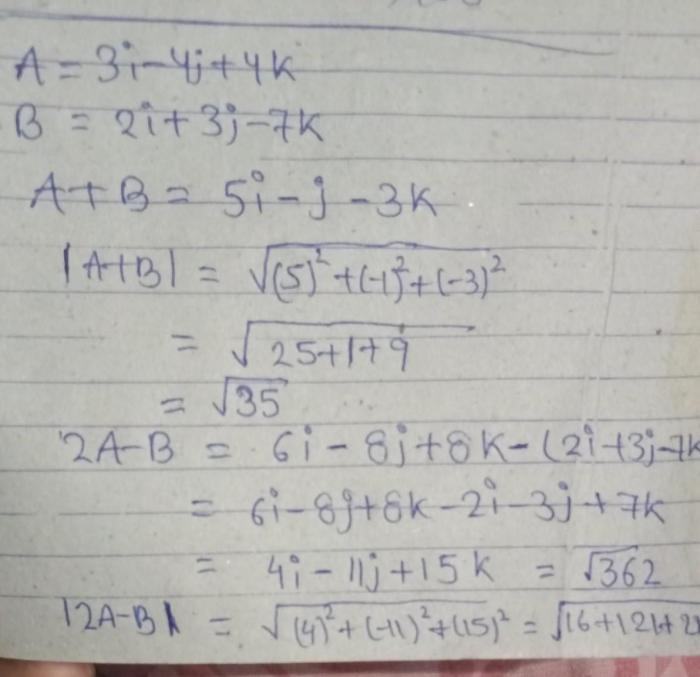 A = 3i-4j+4k
B = 2i+3j-7k
A+B = 5i-j-3k
|A+B| = √(5)²+(-1)²+(-3)²
= √25+1+9
= √35
2A-B = 6i-8j+8k-(2i+3j-7k
= 6i-8j+8k-2i-3j+7k
= 4i-11j+15k = √362
|2A-B| = √(4)²+(-11)²+(15)² = √16+121+2